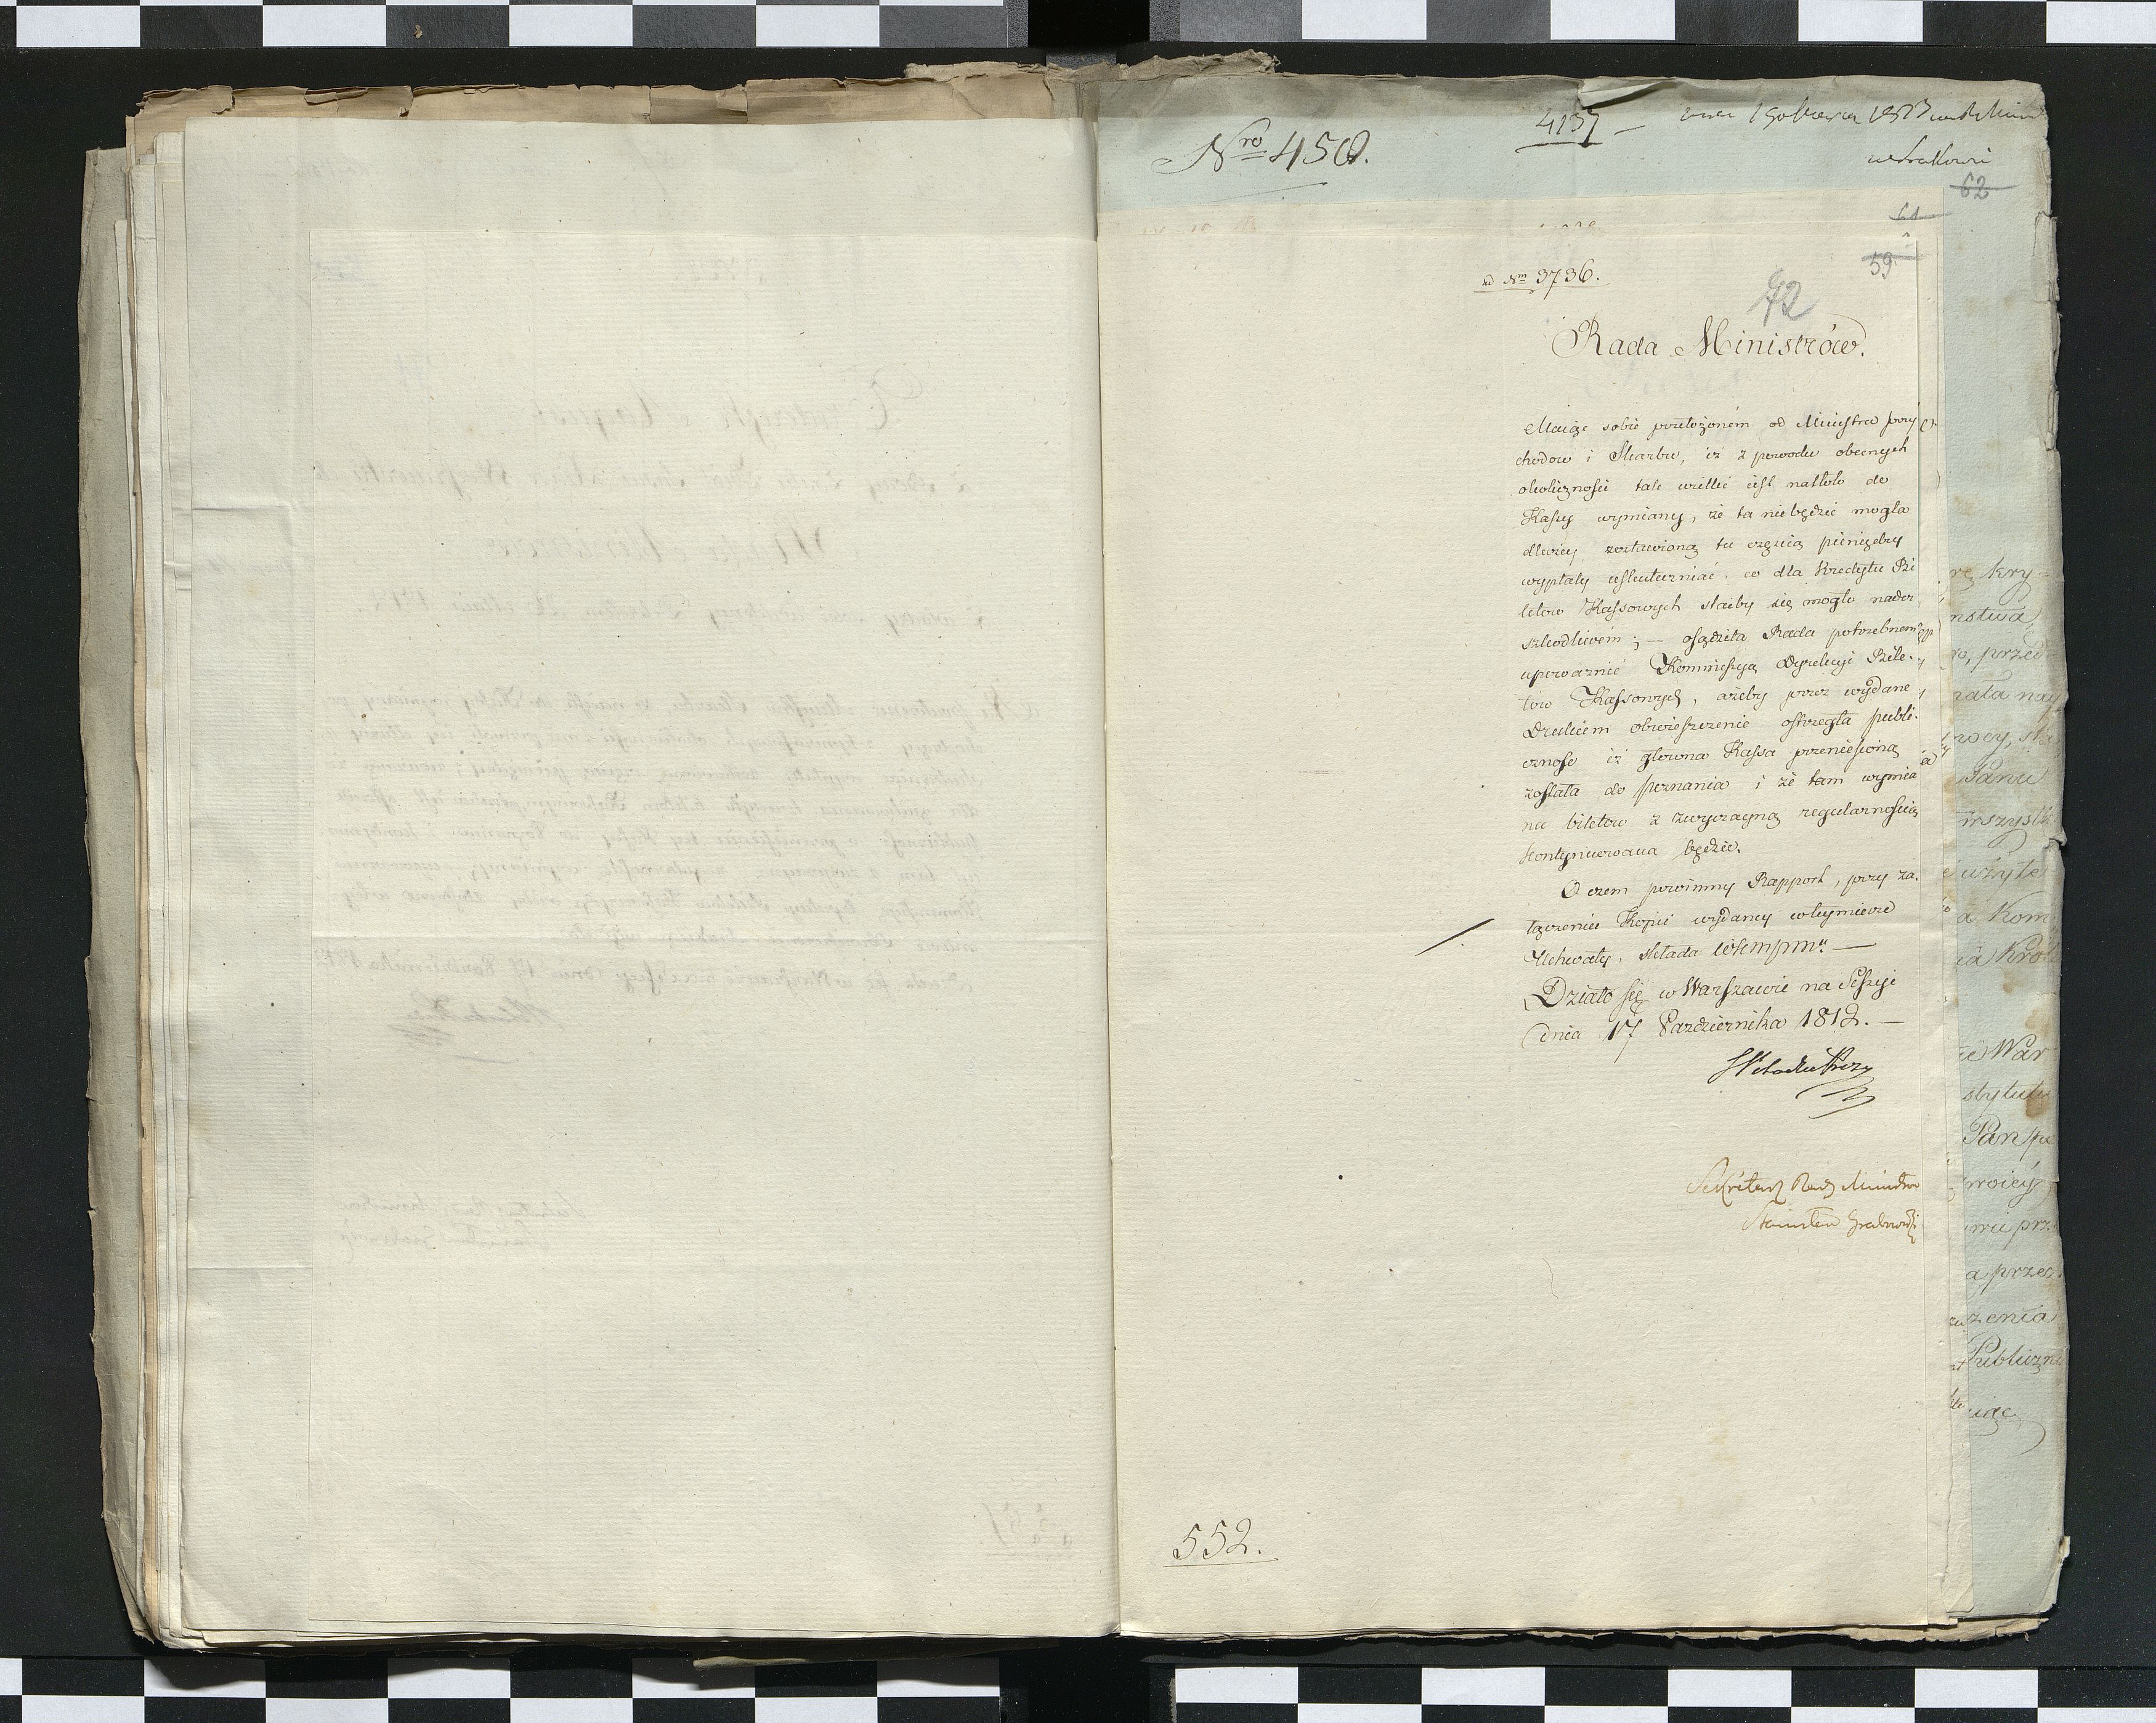 Nro 450.
4137 —
62
61
59
ad Nrm 3736.
72
Rada Ministrów.
Maiąc sobie przełożonem od Ministra przy
chodow i Skarbu, iż z powodu obecnych
okoliczności tak wielki iest natłok do
Kassy wymiany, że ta nie będzie mogła
dłużey zostawioną tu częścią pieniędzy
wypłaty uskuteczniać, co dla Kredytu Bi
letow Kassowych staćby się mogło nader
szkodliwem; — osądziła Rada potrzebnem
upoważnić Kommissyą Dyrekcyi Bile-
tow Kassowych, ażeby przez wydane
drukiem obwieszczenie ostrzegła publi-
czność iż główna Kassa przeniesioną
została do Poznania i że tam wymia
na biletow z zwyczayną regularnością
kontynuowana będzie.
O czem powinny Rapport, przy za-
łączeniu Kopii wydaney w tey mierze
Uchwały, składa
Działo się w Warszawie na Sessyi
dnia 17 Pazdziernika 1812. —
Sekretarz Rady Ministrow
Stanisław Grabowski
552.
rę kry-
nstwa,
ro, przed
rała nay
Panu
wszystk
użyte
a Kom
ia Kró
ie War
stytut
Pan
woiey
wie prz
a przez
zenia
Publiczn